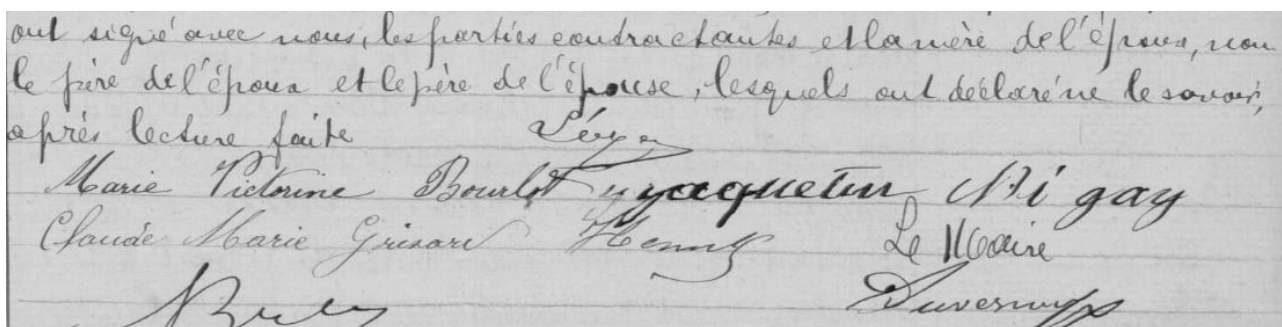 ont signé avec nous, les parties contractantes et la mère de l'époux, non
le père de l'époux et le père de l'épouse, lesquels ont déclaré ne le savoir,
après lecture faite
Marie Victorine Bourlot Jaquetin Migay
Claude Marie Grisard Henry Le Maire
Duvernay